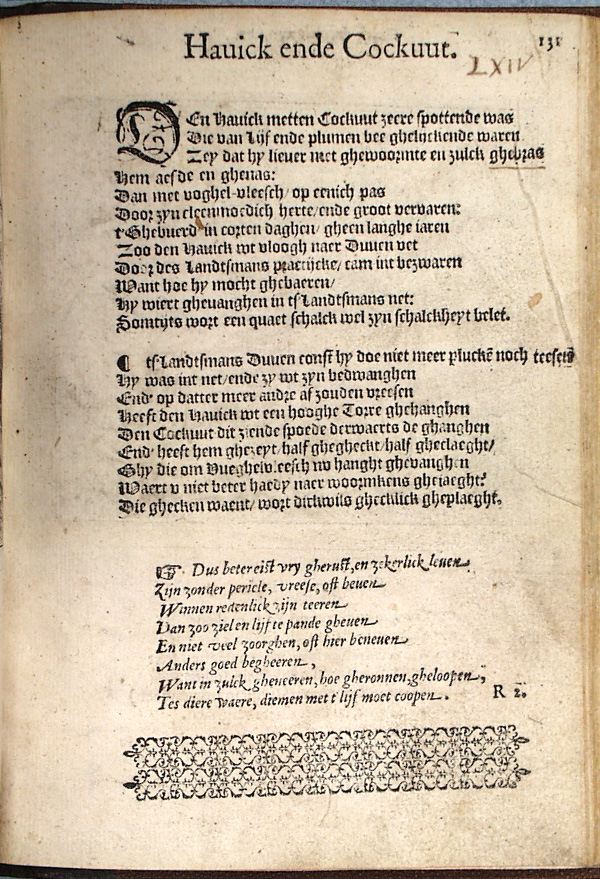 Hauick ende Cockuut.
131
LXIV
EEn Hauick metten Cockuut zeere spottende was
Die van lijf ende plumen bee ghelijckende waren
Zey dat hy liever met ghewoormte en zulck ghebras
Hem aesde en ghenas:
Dan met voghel-vleesch/ op eenich pas
Door zyn cleenmoedich herte/ ende groot vervaren:
t'Ghebuerd' in corten daghen/ gheen langhe iaren
Zoo den Hauick wt vloogh naer Duuen vet
Door des Landtsmans practijcke/ cam int bezwaren
Want hoe hy mocht ghebaeren/
Hy wiert gheuanghen in ts Landtsmans net:
Somtijts wort een quaet schalck wel zyn schalckheyt belet.
¶ ts Landtsmans Duuen const hy doe niet meer pluckē noch teesen
Hy was int net/ ende zy wt zyn bedwanghen
End' op datter meer andre af zouden vreesen
Heeft den Hauick wt een hooghe Torre ghehanghen
Den Cockuut dit ziende spoede derwaerts de ghanghen
End' heeft hem ghezeyt/ half ghegheckt/ half gheclaeght/
Ghy die om Vueghelvleesch nv hanght ghevanghen
Waert v niet beter haedy naer woormkens gheiaeght?
Die ghecken waent/ wort dickwils ghecklick gheplaeght.
☞ Dus beter eist vry gherust, en zekerlick leuen
Zijn zonder pericle, vreese, oft beuen
Winnen redenlick zijn teeren
Dan zoo ziel en lijf te pande gheuen
En niet veel zoorghen, oft hier beneuen
Anders goed begheeren,
Want in zulck gheneeren, hoe gheronnen, gheloopen,
Tes diere waere, diemen met t'lijf moet coopen.
R 2.